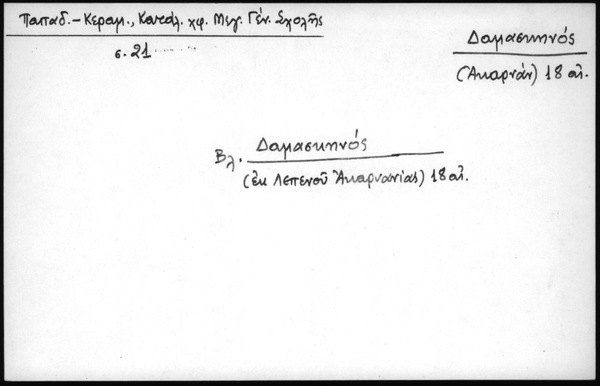 Παπαδ.-Κεραμ., Καταλ. χφ. Μεγ. Γέν. Σχολῆς
σ. 21
Δαμασκηνός
(Ἀκαρνάν) 18 αἰ.
Βλ. Δαμασκηνός
(ἐκ Λεπενοῦ Ἀκαρνανίας) 18 αἰ.